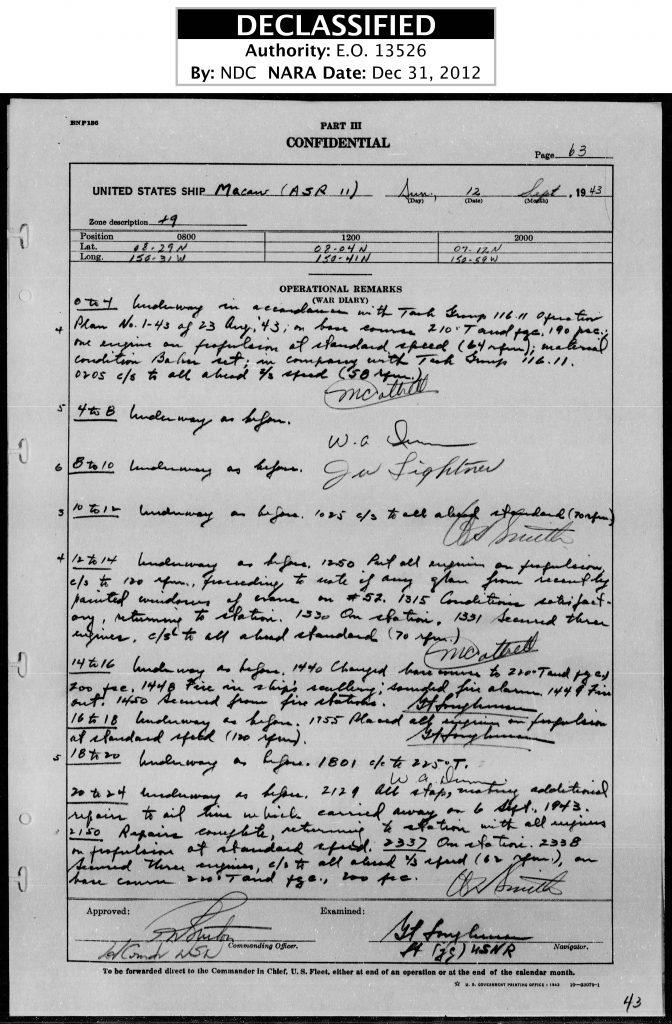 DECLASSIFIED
Authority: E.O. 13526
By: NDC NARA Date: Dec 31, 2012
BNP136
PART III
CONFIDENTIAL
Page 63
UNITED STATES SHIP Macaw (ASR 11) Sun, 12 Sept, 1943
(Day) (Date) (Month)
Zone description +9
Position 0800 1200 2000
Lat. 08-29 N 08-04 N 07-12 N
Long. 150-31 W 150-41 W 150-59 W
OPERATIONAL REMARKS
(WAR DIARY)
0 to 4 Underway in accordance with Task Group 116.11 Operation
4 Plan No. 1-43 of 23 Aug, '43; on base course 210°T and pgc, 190 psc;
one engine on propulsion at standard speed (64 rpm); material
condition Baker set; in company with Task Group 116.11.
0205 c/s to all ahead 2/3 speed (58 rpm.)
McCottrell
5 4 to 8 Underway as before.
W. a Dunn
6 8 to 10 Underway as before. J W Lightner
3 10 to 12 Underway as before. 1025 c/s to all ahead standard (70 rpm)
Smith
4 12 to 14 Underway as before. 1250 Put all engines on propulsion,
c/s to 120 rpm., proceeding to note if any glare from recently
painted windows of crane on #52. 1315 Conditions satisfact-
ory, returning to station. 1330 On station. 1331 Secured three
engines, c/s to all ahead standard (70 rpm.)
McCottrell
14 to 16 Underway as before. 1440 Changed base course to 220°T and pgc,
200 psc. 1448 Fire in ship's scullery; sounded fire alarm. 1449 Fire
out. 1450 Secured from fire stations. Loughman
16 to 18 Underway as before. 1755 Placed all engines on propulsion
at standard speed (120 rpm). Loughman
5 18 to 20 Underway as before. 1801 c/c to 225°T.
W a Dunn
20 to 24 Underway as before. 2129 All stop, making additional
repairs to oil line which carried away on 6 Sept., 1943.
2150 Repairs complete, returning to station with all engines
on propulsion at standard speed. 2337 On station. 2338
Secured three engines, c/s to all ahead 2/3 speed (62 rpm.), on
base course 220°T and pgc., 200 psc.
Smith
Approved: Examined:
Burton Loughman
Lt Comdr USN Commanding Officer. Lt (jg) USNR Navigator.
To be forwarded direct to the Commander in Chief, U.S. Fleet, either at end of an operation or at the end of the calendar month.
☆ U. S. GOVERNMENT PRINTING OFFICE : 1943
43